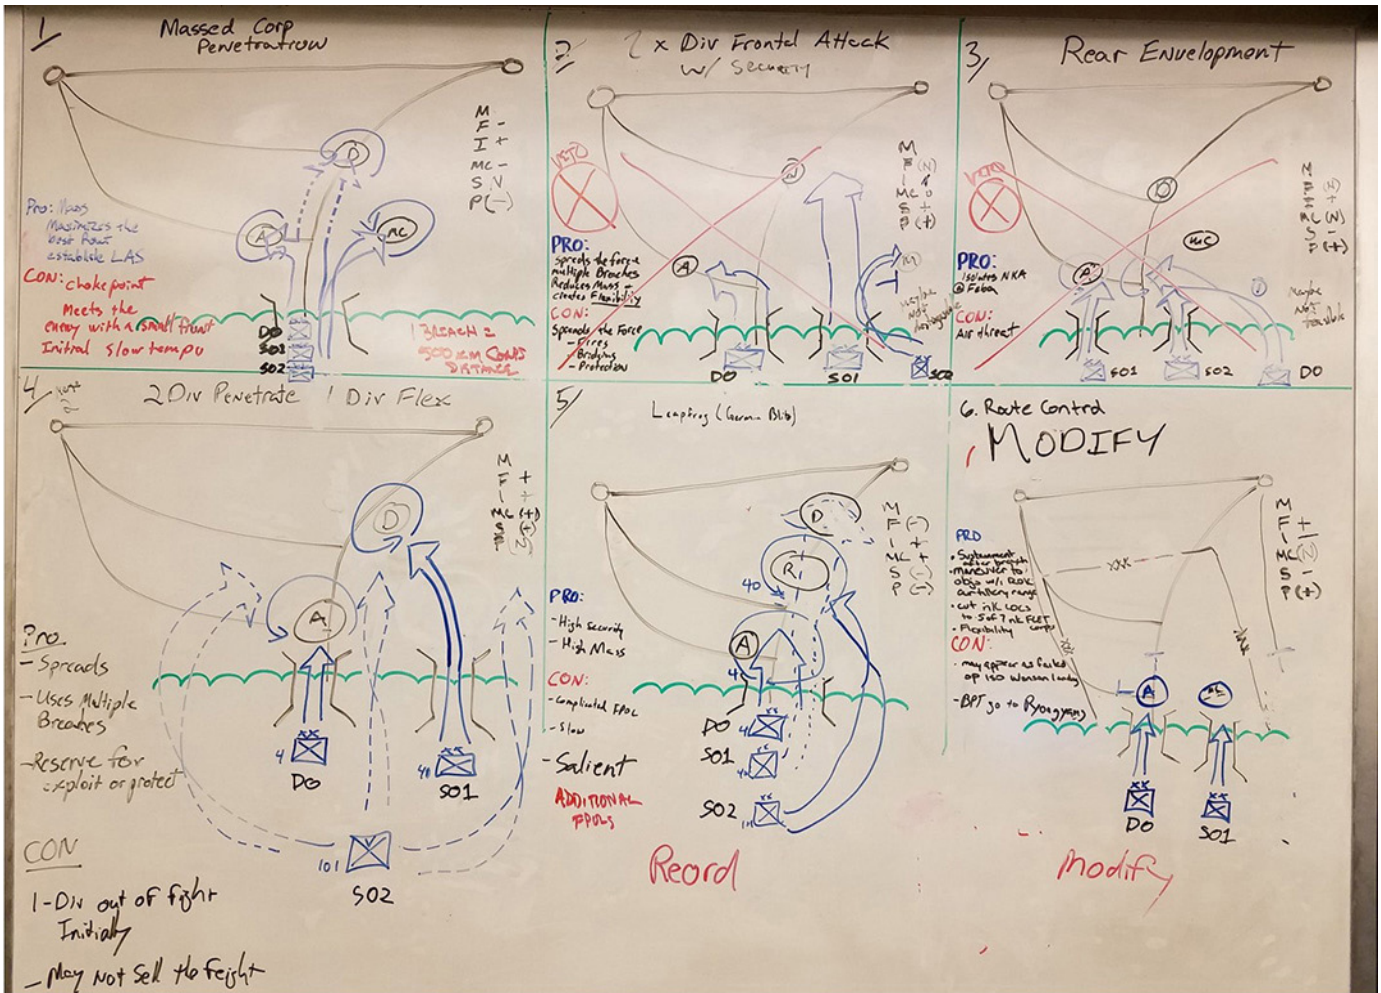 1/
Massed Corp
Penetration
D
A
MC
M
F -
I +
MC -
S N
P(-)
Pro: Mass
Maximizes the
best Rout
establish LAS
CON: chokepoint
Meets the
enemy with a small front
Initial slow tempo
DO
SO1
SO2
1 BREACH =
500 KM CONVS
DISTANCE
2/
2 x Div Frontal Attack
w/ SECURITY
VETO
A
M
F (N)
I
MC 0
S +
P (+)
PRO:
spreads the force
multiple Breaches
Reduces Mass -
creates Flexibility
CON:
Spreads the Force
- Fires
Bridging
- Protection
Maybe
Not
DO
SO1
SO2
3/
Rear Envelopment
VETO
D
MC
A
MC (N)
S -
P (+)
PRO:
isolates NKA
@ Feba
CON:
Air threat
Maybe
Not
SO1
SO2
DO
4/
2 Div Penetrate 1 Div Flex
D
A
M
F +
I +
MC (+)
Pro.
- Spreads
- Uses Multiple
Breaches
- Reserve for
exploit or protect
XX
4
DO
XX
40
SO1
101
SO2
CON
1-Div out of fight
Initially
- May Not Sell the feight
5/
Leapfrog (German Blitz)
D
R
40
A
4
M
F (-)
I +
MC +
S (-)
P (-)
PRO:
- High security
- High Mass
CON:
- Complicated FPOL
- Slow
- Salient
ADDITIONAL
FPOLs
DO
XX
4
SO1
XX
40
SO2
XX
101
Reord
6. Route Control
MODIFY
M
F +
I
MC (N)
S -
P (+)
PRO
• Sustainment
after breach
• maneuver to
objs w/i ROK
artillery range
• cut nK LOCs
to 5 of 7 nK FLET
corps
- Flexibility
CON:
• may appear as failed
op iso Wonson landing
- BPT go to Pyongyang
XXX
XX
A
MC
XX
DO
XX
SO1
Modify